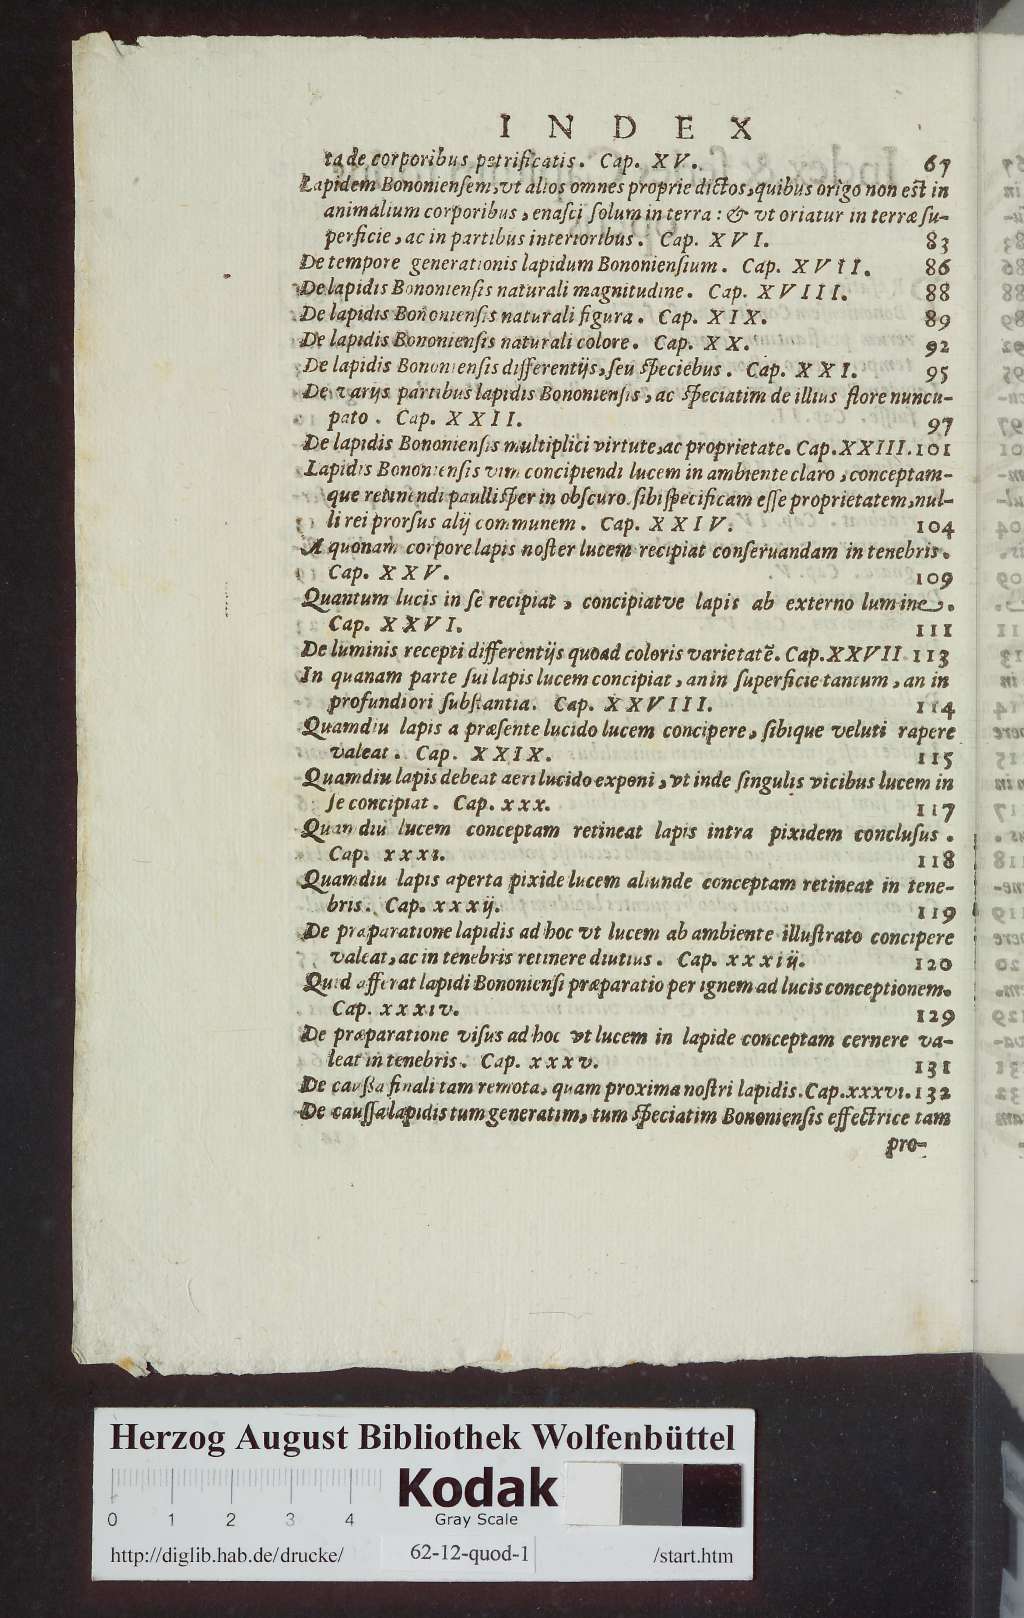 INDEX
ta de corporibus petrificatis. Cap. XV. 67
Lapidem Bononienſem, vt alios omnes proprie dictos, quibus origo non eſt in
animalium corporibus, enaſci ſolum in terra: & vt oriatur in terræ ſu-
perficie, ac in partibus interioribus. Cap. XVI. 83
De tempore generationis lapidum Bononienſium. Cap. XVII. 86
De lapidis Bononienſis naturali magnitudine. Cap. XVIII. 88
De lapidis Bononienſis naturali figura. Cap. XIX. 89
De lapidis Bononienſis naturali colore. Cap. XX. 92
De lapidis Bononienſis differentijs, ſeu ſpeciebus. Cap. XXI. 95
De varijs partibus lapidis Bononienſis, ac ſpeciatim de illius flore nuncu-
pato. Cap. XXII. 97
De lapidis Bononienſis multiplici virtute, ac proprietate. Cap. XXIII. 101
Lapidis Bononienſis vim concipiendi lucem in ambiente claro, conceptam-
que retinendi paulliſper in obſcuro ſibi ſpecificam eſſe proprietatem, nul-
li rei prorſus alij communem. Cap. XXIV. 104
A quonam corpore lapis noſter lucem recipiat conſeruandam in tenebris.
Cap. XXV. 109
Quantum lucis in ſe recipiat, concipiatve lapis ab externo lumine.
Cap. XXVI. 111
De luminis recepti differentijs quoad coloris varietatē. Cap. XXVII 113
In quanam parte ſui lapis lucem concipiat, an in ſuperficie tantum, an in
profundiori ſubſtantia. Cap. XXVIII. 114
Quamdiu lapis a præſente lucido lucem concipere, ſibique veluti rapere
valeat. Cap. XXIX. 115
Quamdiu lapis debeat aeri lucido exponi, vt inde ſingulis vicibus lucem in
ſe concipiat. Cap. xxx. 117
Quan diu lucem conceptam retineat lapis intra pixidem concluſus.
Cap. xxxi. 118
Quamdiu lapis aperta pixide lucem aliunde conceptam retineat in tene-
bris. Cap. xxxij. 119
De præparatione lapidis ad hoc vt lucem ab ambiente illuſtrato concipere
valeat, ac in tenebris retinere diutius. Cap. xxxiij. 120
Quid afferat lapidi Bononienſi præparatio per ignem ad lucis conceptionem.
Cap. xxxiv. 129
De præparatione viſus ad hoc vt lucem in lapide conceptam cernere va-
leat in tenebris. Cap. xxxv. 131
De cauſſa finali tam remota, quam proxima noſtri lapidis. Cap. xxxvi. 132
De cauſſa lapidis tum generatim, tum ſpeciatim Bononienſis effectrice tam
pro-
Herzog August Bibliothek Wolfenbüttel
Kodak
Gray Scale
0 1 2 3 4
http://diglib.hab.de/drucke/ 62-12-quod-1 /start.htm